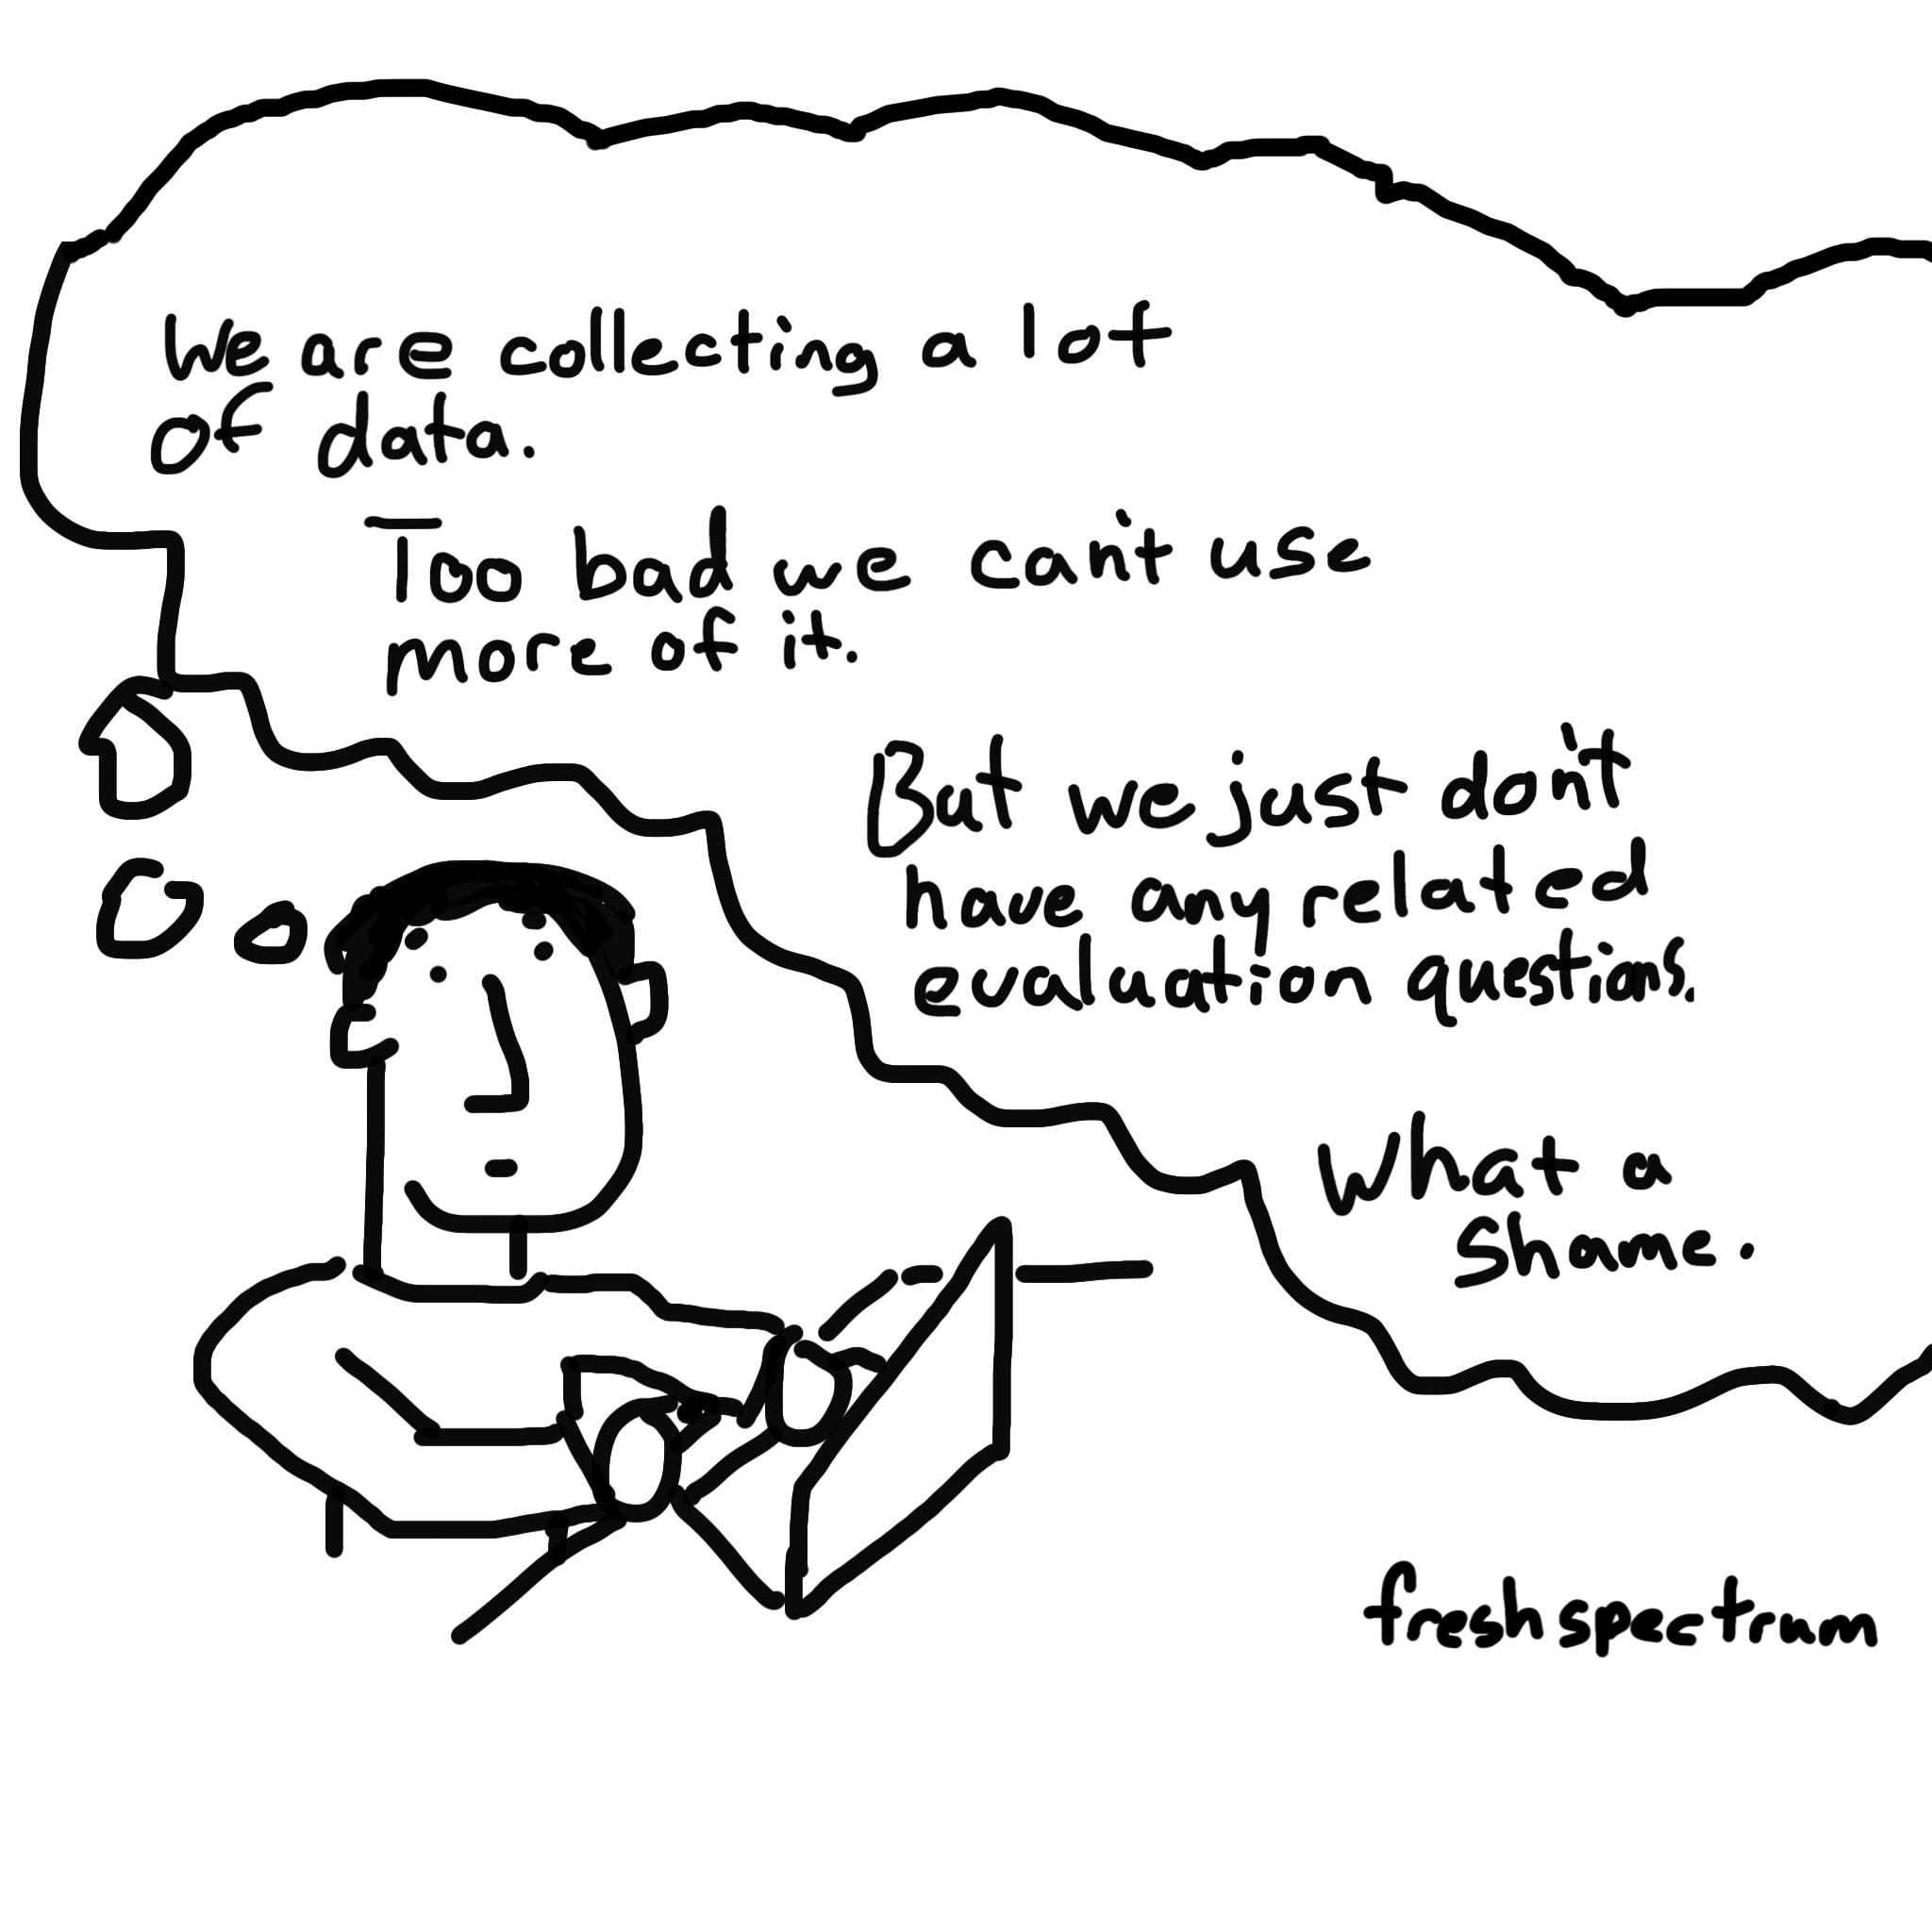 We are collecting a lot
of data.
Too bad we can't use
more of it.
But we just don't
have any related
evaluation questions.
What a
shame.
freshspectrum